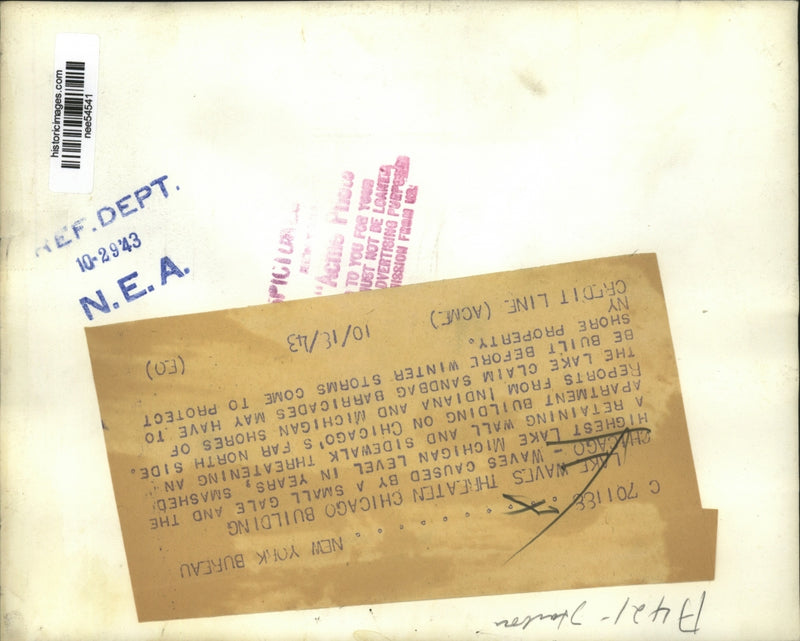 historicimages.com
nee54541
REF. DEPT.
10-29 '43
N.E.A.
"Acme Photo
TO YOU FOR YOUR
MUST NOT BE LOANED
ADVERTISING PURPOSES
MISSION FROM US.
NEW YORK BUREAU
C 701188 . . . . . . . . . .
LAKE WAVES THREATEN CHICAGO BUILDING
CHICAGO - WAVES CAUSED BY A SMALL GALE AND THE
HIGHEST LAKE MICHIGAN LEVEL IN YEARS, SMASHED
A RETAINING WALL AND SIDEWALK THREATENING AN
APARTMENT BUILDING ON CHICAGO'S FAR NORTH SIDE.
REPORTS FROM INDIANA AND MICHIGAN SHORES OF
THE LAKE CLAIM SANDBAG BARRICADES MAY HAVE TO
BE BUILT BEFORE WINTER STORMS COME TO PROTECT
SHORE PROPERTY.
NY
CREDIT LINE (ACME) 10/18/43 (EO)